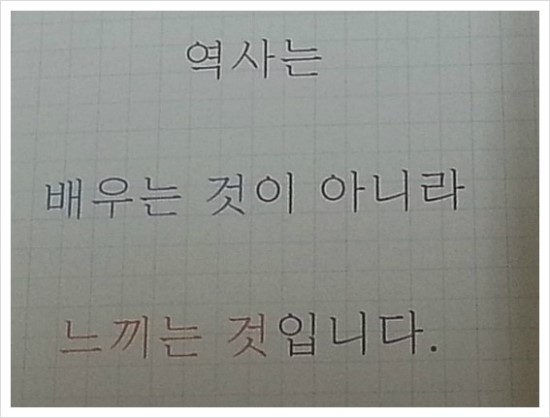 역사는
배우는 것이 아니라
느끼는 것입니다.